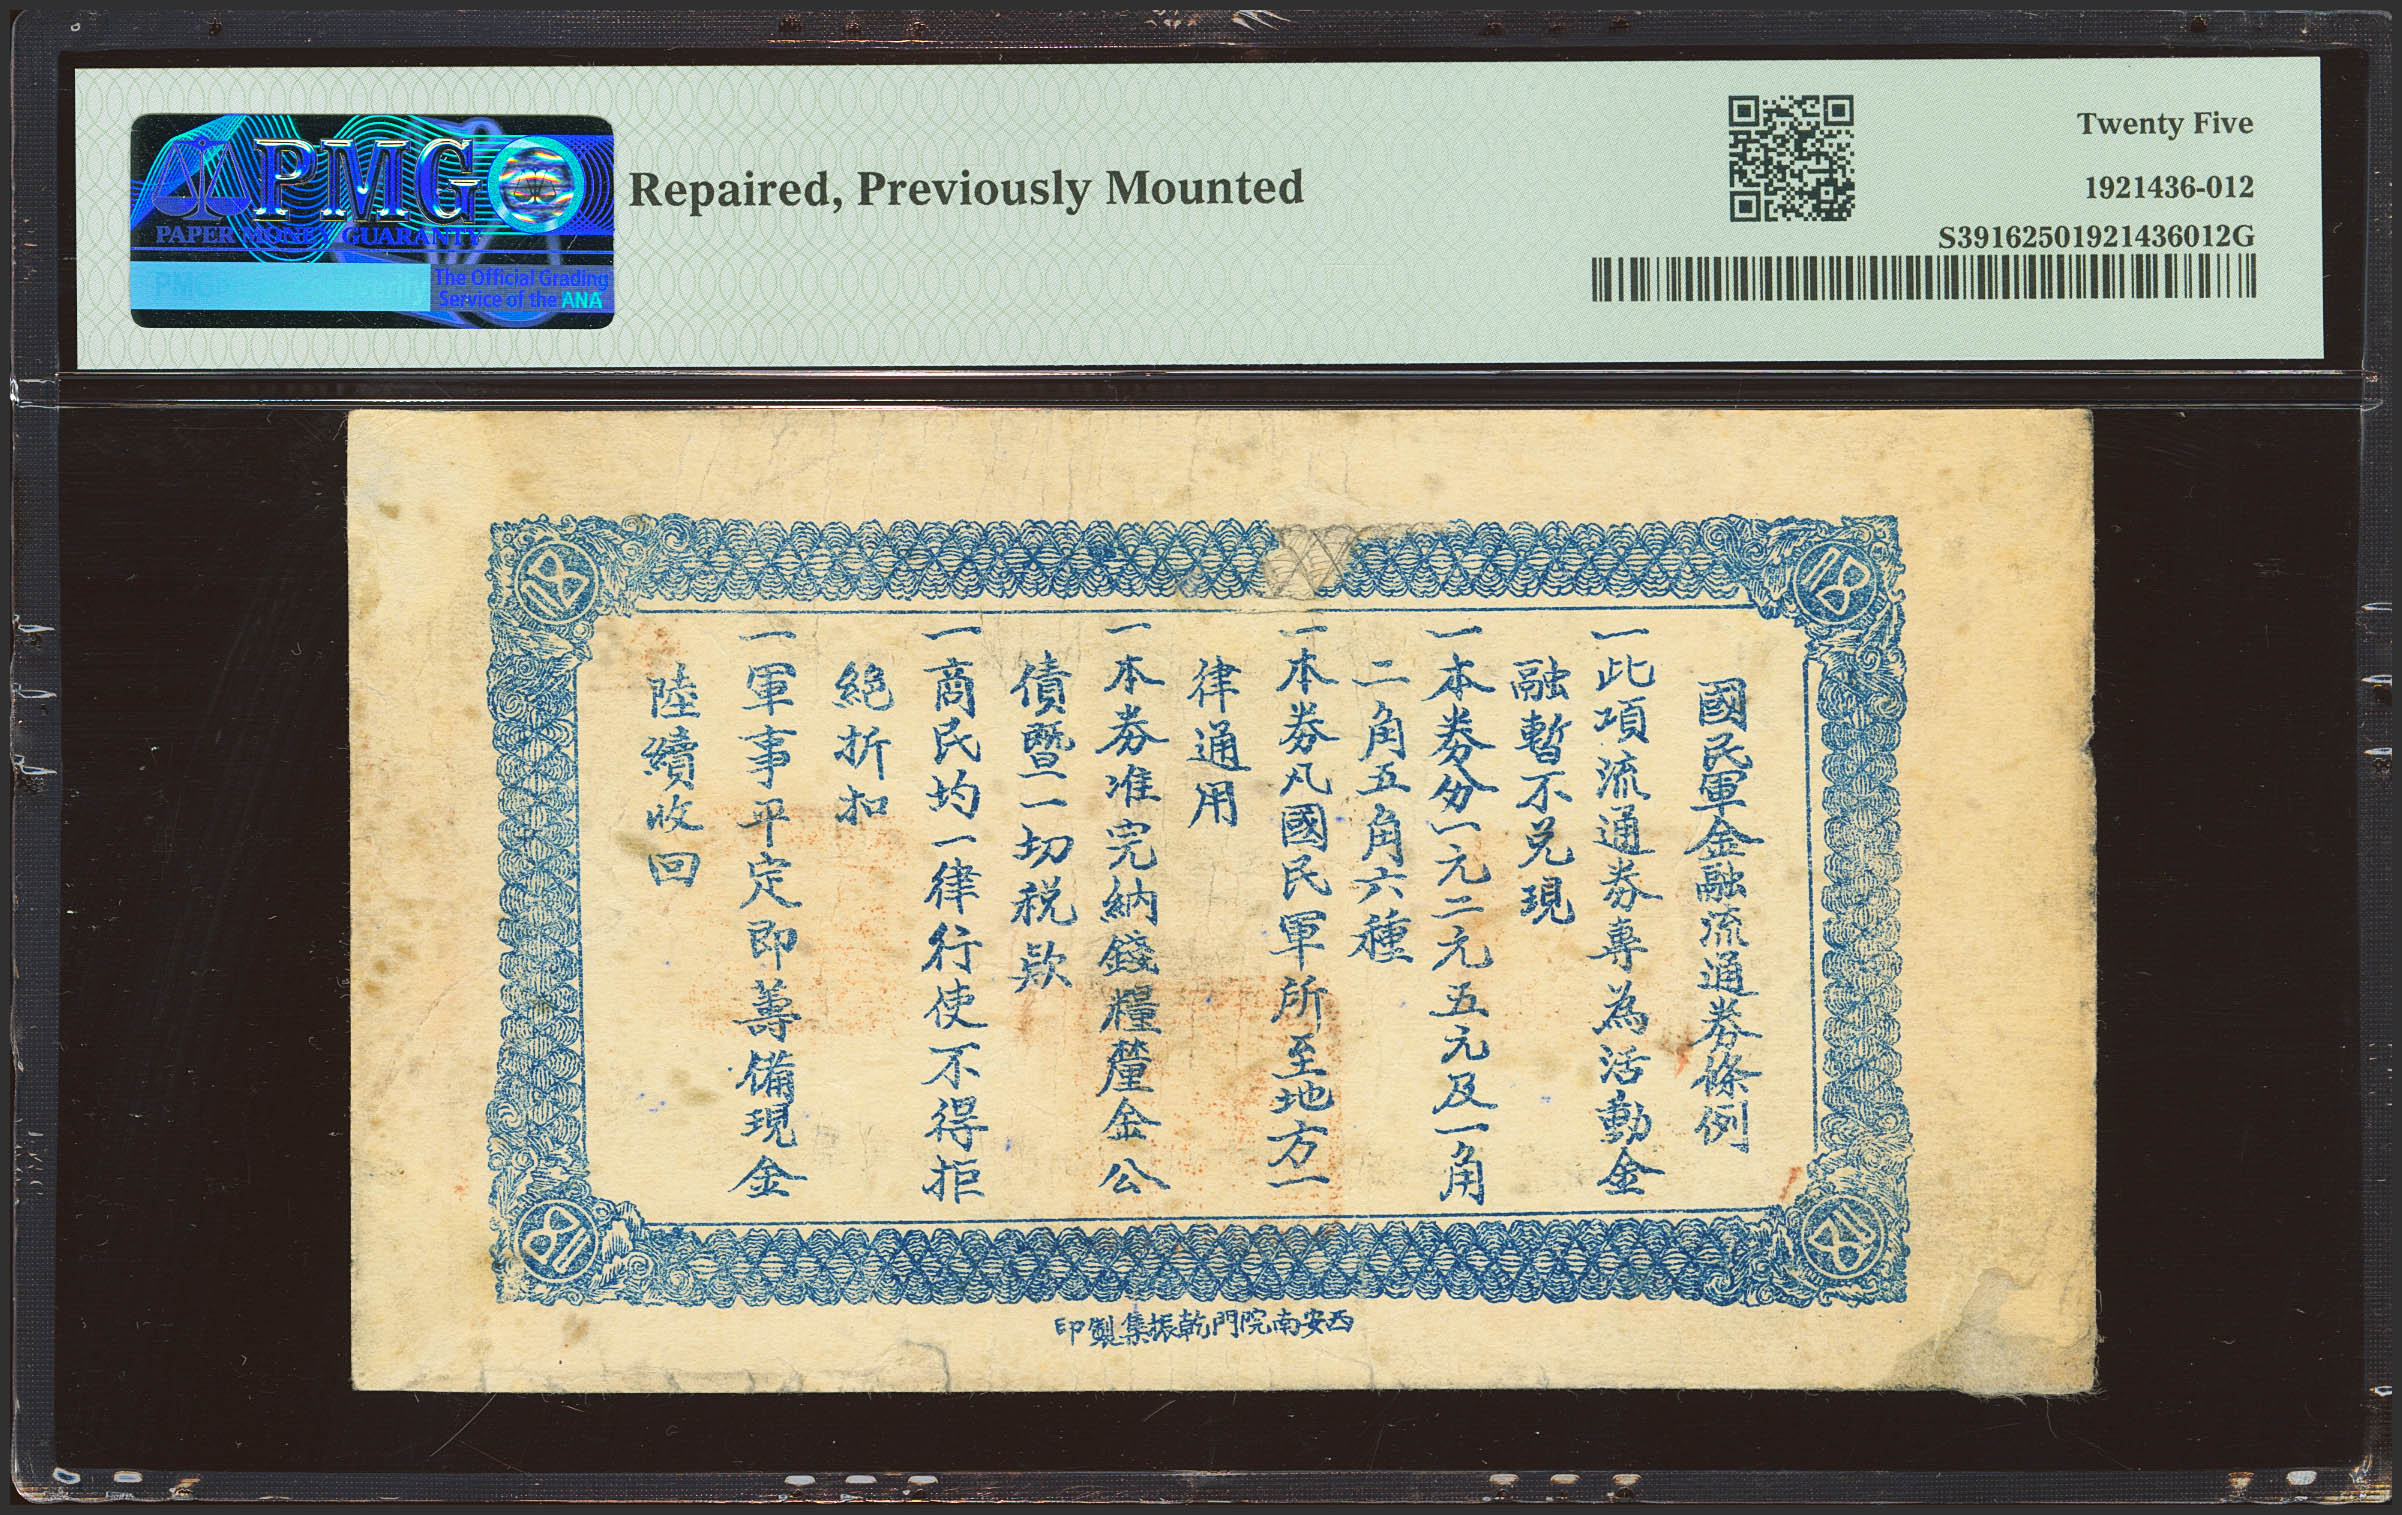 PMG
PAPER MONEY GUARANTY
The Official Grading
Service of the ANA
Repaired, Previously Mounted
Twenty Five
1921436-012
S39162501921436012G
國民軍金融流通券條例
一此項流通券專為活動金
融暫不兑現
一本券分一元二元五元及一角
二角五角六種
一本券凡國民軍所至地方一
律通用
一本券准完納錢糧釐金公
債暨一切税欵
一商民均一律行使不得拒
絕折扣
一軍事平定即籌備現金
陸續收回
西安南院門乾振集製印